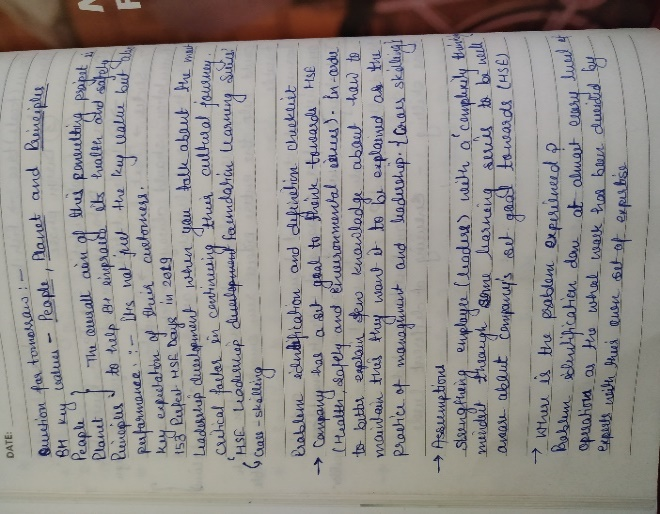 DATE:
Question for tomorrow :-
BH key values - People, Planet and Principles
People } The overall aim of this consulting project is
Planet } to help BH empraces its health and safety
Principles
performance :- Its not just the key value but also
key expectation of their customers.
153 Perfect HSE Days in 2019
Leadership development when you talk about the most
critical factor in continuing this cultural journey
'HSE Leadership development Foundation Learning Series'
↳ Cross-skilling
Problem identification and definition checklist
→ Company has a set goal to thrive towards HSE
(Health safety and Environmental issues). In order
to better explain you knowledge about how to
maintain this they want it to be explained as the
practice of management and leadership. (Cross skilling)
→ Assumptions
Strengthening employee (leaders) with a complexity thinking
mindset through some learning series to be well
aware about company's set goal towards (HSE)
→ Where is the problem experienced?
Problem identification done at almost every level of
operations as the whole work has been divided by
experts with their even set of expertise